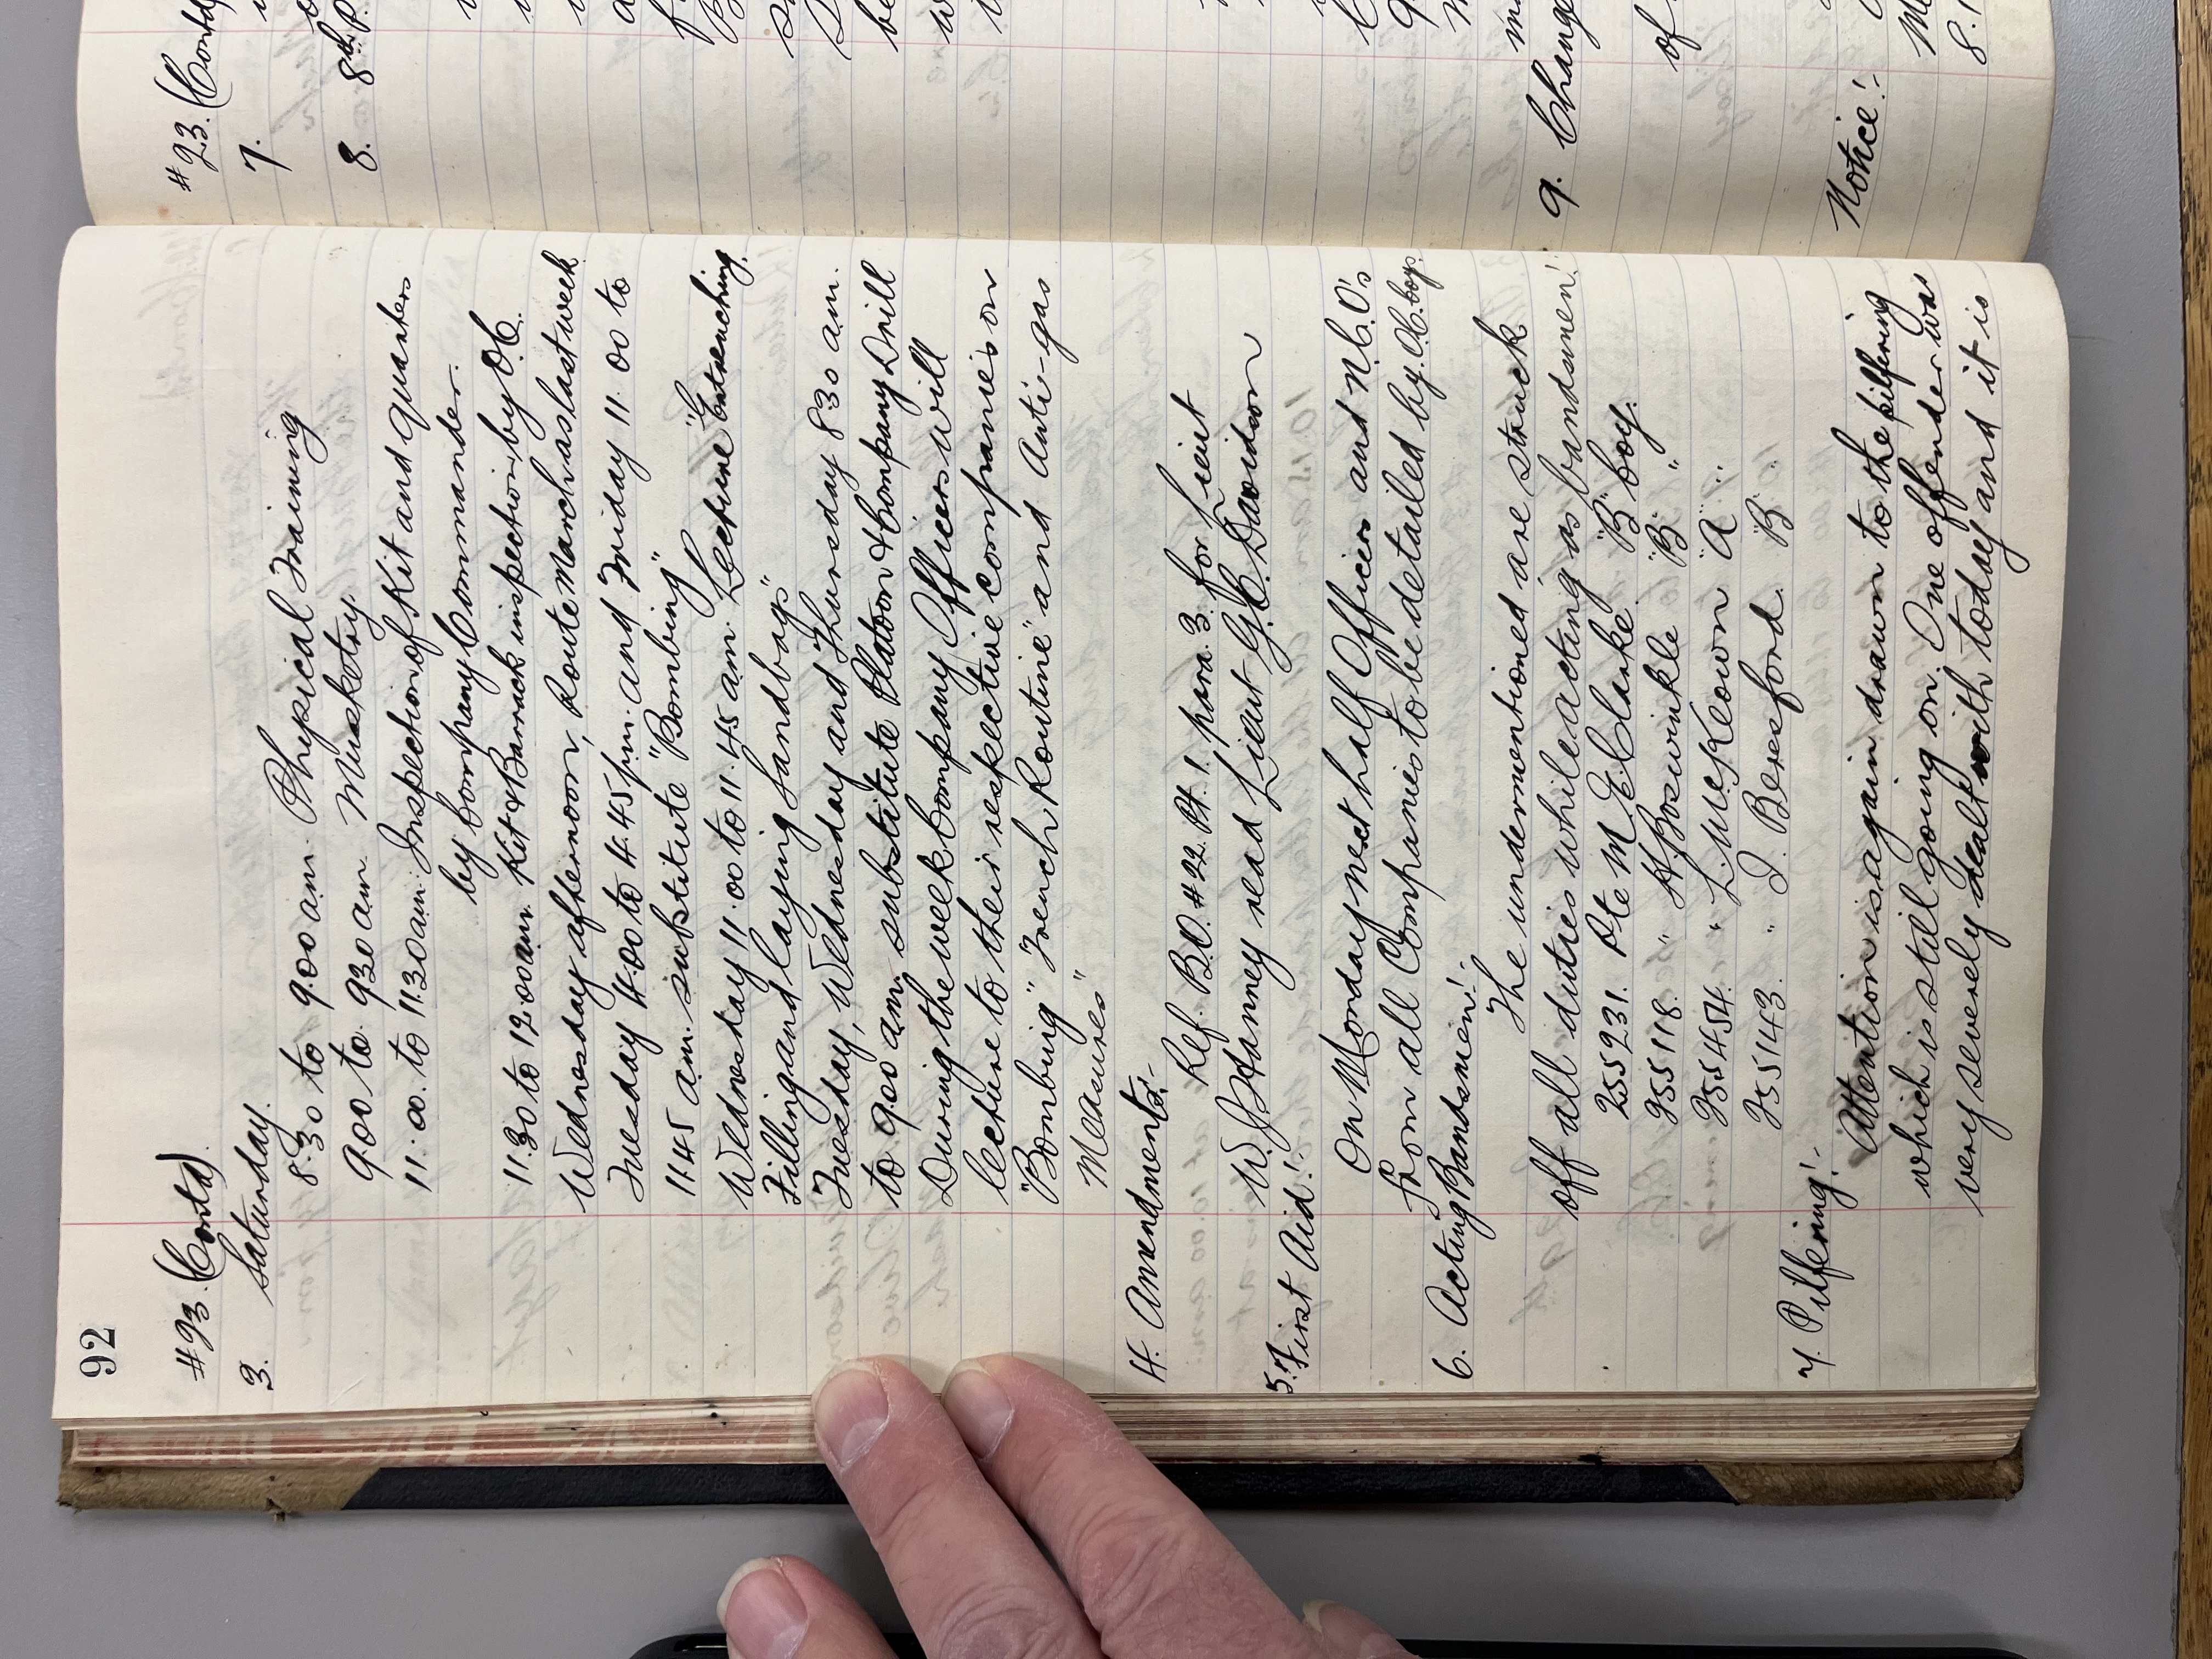 92
#23. (Contd).
3. Saturday.
8.30 to 9.00 am. Physical Training
9.00 to 9.30 am Musketry.
11.00. to 11.30 am. Inspection of Kit and quarters
by Company Commander.
11.30 to 12.00 am. Kit & Barrack inspection by O.C.
Wednesday afternoon, Route March as last week
Tuesday 4.00 to 4.45 p.m. and Friday 11.00 to
11.45 am. substitute "Bombing"
Wednesday 11.00 to 11.45 am. Lecture "Entrenching,
Filling and laying Sandbags"
Tuesday, Wednesday and Thursday 8.30 am.
to 9.00 am. substitute Platoon & Company Drill
During the week Company Officers will
lecture to their respective companies on
"Bombing" "Trench Routine" and Anti-gas
Measures"
4. Amendments:-
Ref. B.O. #22. Pt. 1. para. 3. for Lieut
W. J. Hanney read Lieut G. C. Davidson
5. First Aid:-
On Monday next half Officers and N.C.O's
from all Companies to be detailed by O.C. Coys.
6. Acting Bandsmen:-
The undermentioned are struck
off all duties while acting as bandsmen:-
255231. Pte M. E. Clarke "B" Coy.
255118. " H. Boswinkle "B" "
255454. " L. McKeown "A" "
255143. " J. Beresford "B" "
7. Pilfering:-
Attention is again drawn to the pilfering
which is still going on. One offender was
very severely dealt with today and it is
#23. (Contd
7.
8. 8th P.
9. Change
of
Notice:-
8.1